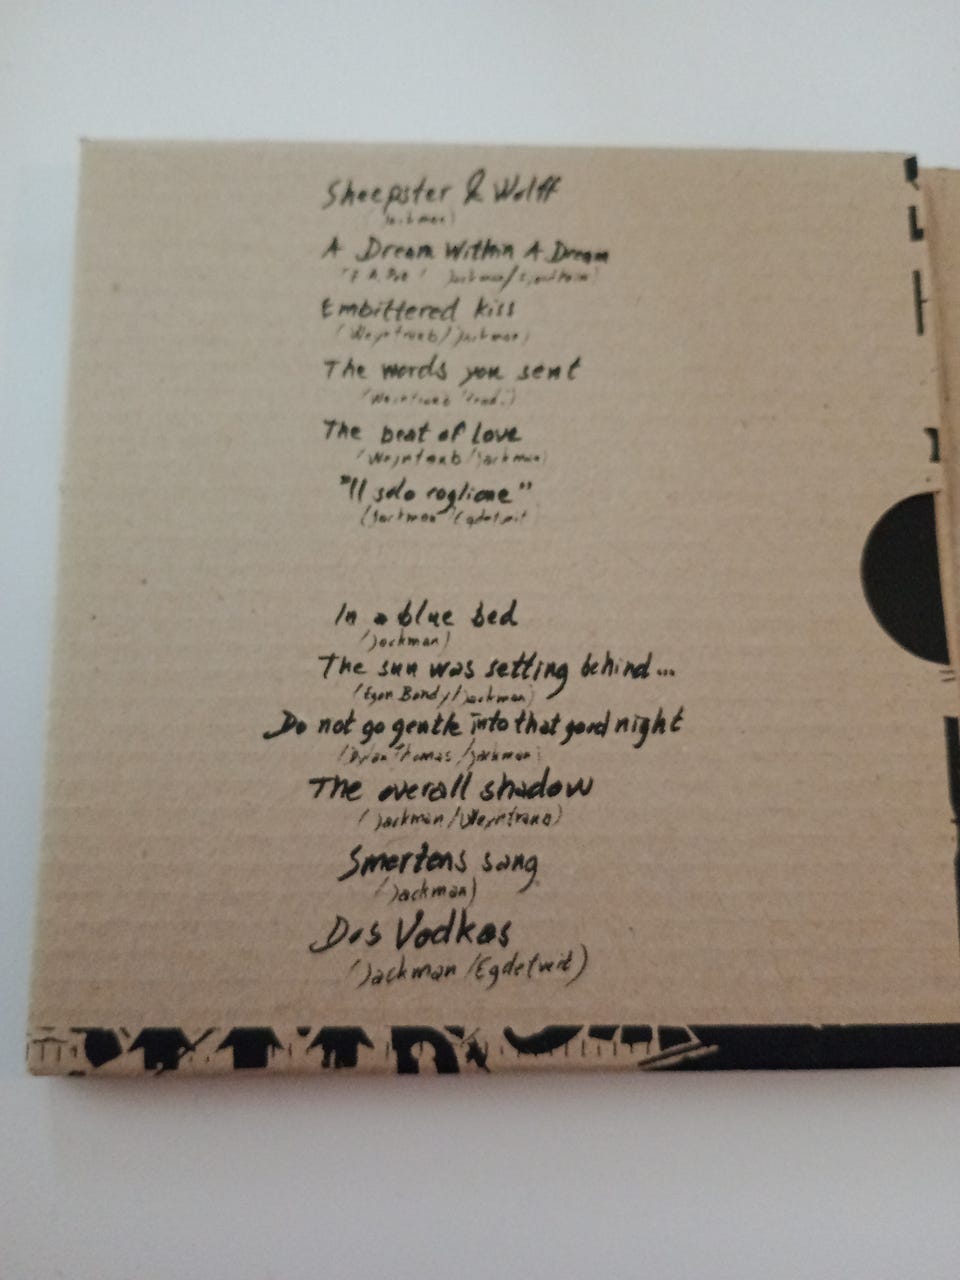 Sheepster & Wolff
(Jackman)
A Dream Within A Dream
Embittered kiss
(Weyntraub/Jackman)
The words you sent
The beat of love
(Weyntraub/Jackman)
"Il solo coglione"
(Jackman/Egdetveit
In a blue bed
(Jackman)
The sun was setting behind...
(Egon Bondy/Jackman)
Do not go gentle into that good night
(Dylan Thomas/Jackman)
The overall shadow
(Jackman/Weyntraub)
Smertens sang
(Jackman)
Dos Vodkas
(Jackman/Egdetveit)